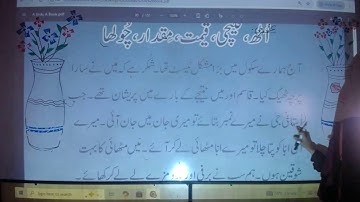 اُٹھ، نیچی، قیمت، مقدار، چولھا
آج ہمارے سکول میں بڑا مشکل ٹیسٹ تھا۔ شکر ہے کہ میں نے سارا
ٹھیک کیا۔ قاسم اور میں نتیجے کے بارے میں پریشان تھے۔ جب
جی نے میرے نمبر بتائے تو میری جان میں جان آئی۔ میرے
ابا کو پتا چلا تو میرے لیے مٹھائی لے کر آئے۔ میں مٹھائی کا بہت
شوقین ہوں۔ ہم سب نے برفی اور مزے لے لے کر کھائے۔